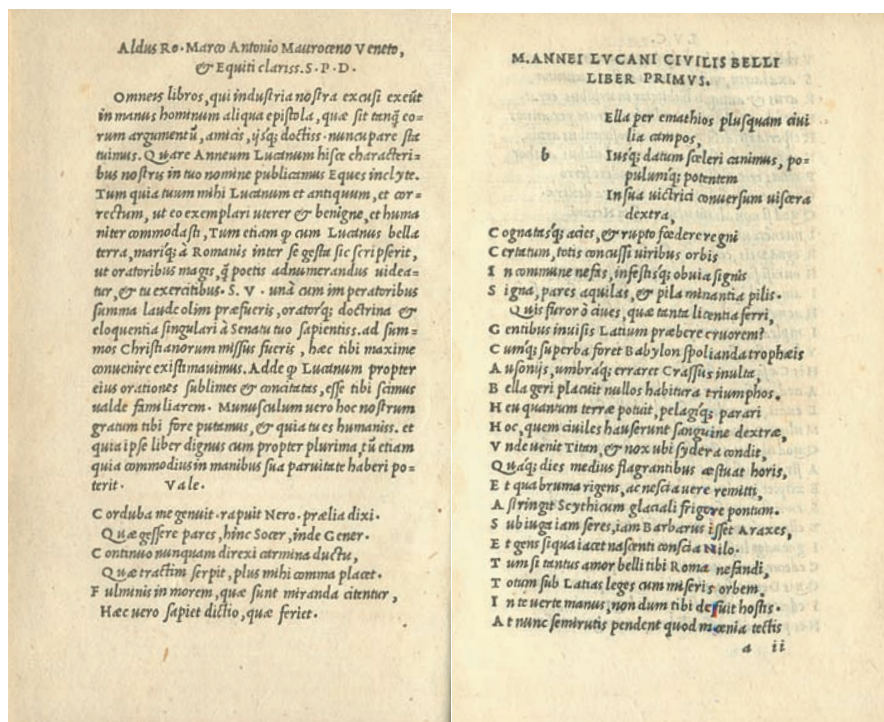 Aldus Ro. Marco Antonio Mauroceno Veneto,
& Equiti clariss. S. P. D.
Omneis libros, qui industria nostra excusi exeũt
in manus hominum aliqua epistola, quæ sit tanq̃ eo-
rum argumentũ, amicis, ijsq; doctiss. nuncupare sta
tuimus. Quare Anneum Lucanum hisce characteri-
bus nostris in tuo nomine publicamus Eques inclyte.
Tum quia tuum mihi Lucanum et antiquum, et cor-
rectum, ut eo exemplari uterer & benigne, et huma
niter commodasti, Tum etiam ꝙ cum Lucanus bella
terra, mariq; à Romanis inter se gesta sic scripserit,
ut oratoribus magis, q̃ poetis adnumerandus uidea-
tur, & tu exercitibus. S. V. unà cum imperatoribus
summa laude olim præfueris, oratorq; doctrina &
eloquentia singulari à Senatu tuo sapientiss. ad sum-
mos Christianorum missus fueris, hæc tibi maxime
conuenire existimauimus. Adde ꝙ Lucanum propter
eius orationes sublimes & concitatas, esse tibi scimus
ualde familiarem. Munusculum uero hoc nostrum
gratum tibi fore putamus, & quia tu es humaniss. et
quia ipse liber dignus cum propter plurima, tũ etiam
quia commodius in manibus sua paruitate haberi po-
terit. Vale.
Corduba me genuit. rapuit Nero. prælia dixi.
Quæ gessere pares, hinc Socer, inde Gener.
Continuo nunquam direxi carmina ductu,
Quæ tractim serpit, plus mihi comma placet.
Fulminis in morem, quæ sunt miranda citentur,
Hæc uero sapiet dictio, quæ feriet.
M. ANNEI LVCANI CIVILIS BELLI
LIBER PRIMVS.
Ella per emathios plusquam ciui
lia campos,
b Iusq; datum sceleri canimus, po-
pulumq; potentem
In sua uictrici conuersum uiscera
dextra,
Cognatasq; acies, & rupto fœdere regni
Certatum, totis concussi uiribus orbis
In commune nefas, infestisq; obuia signis
Signa, pares aquilas, & pila minantia pilis.
Quis furor ò ciues, quæ tanta licentia ferri,
Gentibus inuisis Latium præbere cruorem?
Cumq; superba foret Babylon spolianda trophæis
Ausonijs, umbraq; erraret Crassus inulta,
Bella geri placuit nullos habitura triumphos.
Heu quantum terræ potuit, pelagiq; parari
Hoc, quem ciuiles hauserunt sanguine dextræ,
Vnde uenit Titan, & nox ubi sydera condit,
Quaq; dies medius flagrantibus æstuat horis,
Et qua bruma rigens, ac nescia uere remitti,
Astringit Scythicum glaciali frigore pontum.
Sub iuga iam seres, iam Barbarus isset Araxes,
Et gens si qua iacet nascenti conscia Nilo.
Tum si tantus amor belli tibi Roma nefandi,
Totum sub Latias leges cum miseris orbem,
In te uerte manus, non dum tibi defuit hostis.
At nunc semirutis pendent quod mœnia tectis
a ii